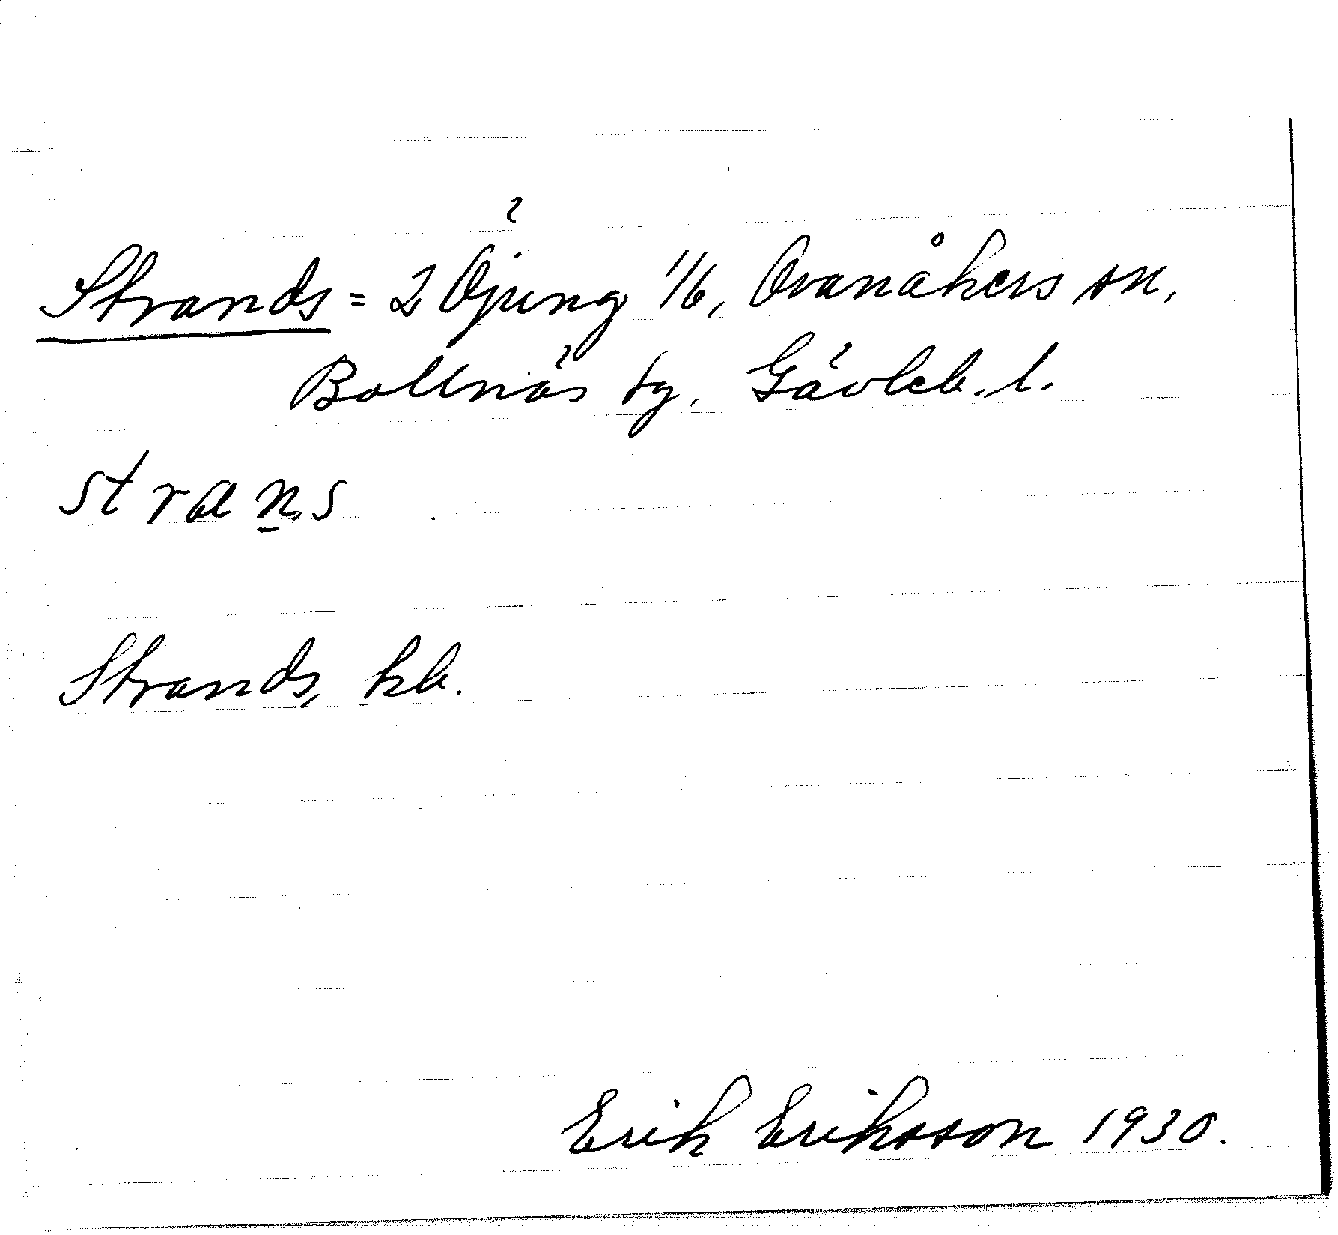 Strands = 2 Öjung 1/6, Ovanåkers sn,
Bollnäs tg, Gävleb. l.
strans
Strands, kb.
Erik Eriksson 1930.